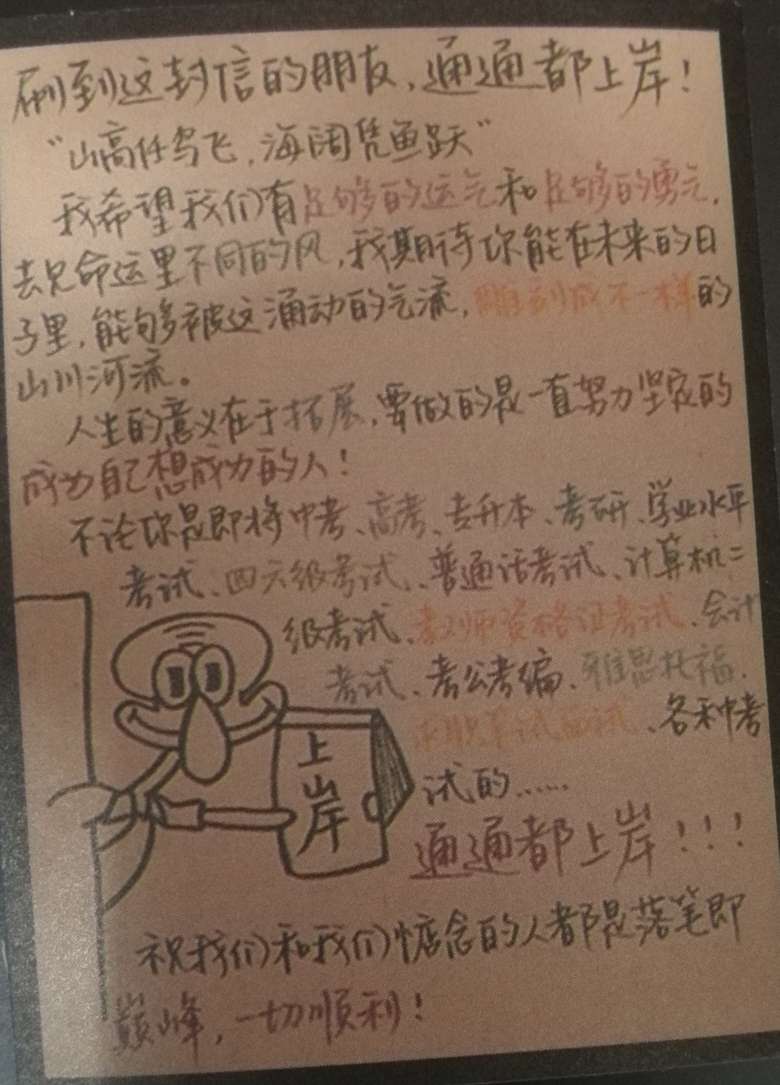 刷到这封信的朋友,通通都上岸!
"山高任鸟飞,海阔凭鱼跃"
我希望我们有足够的运气和足够的勇气,
去见命运里不同的风,我期待你能在未来的日
子里,能够被这涌动的气流,雕刻成不一样的
山川河流。
人生的意义在于拓展,要做的是一直努力坚定的
成为自己想成为的人!
不论你是即将中考、高考、专升本、考研、学业水平
考试、四六级考试、普通话考试、计算机二
级考试、教师资格证考试、会计
考试、考公考编、雅思托福、
求职笔试面试、各种考
试的……
通通都上岸!!!
上岸
祝我们和我们惦念的人都是落笔即
巅峰,一切顺利!